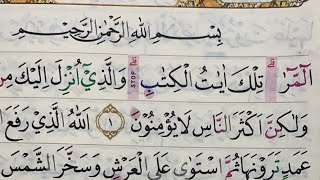 بِسْمِ اللّٰهِ الرَّحْمٰنِ الرَّحِيْمِ
الٓمّٓرٰ ۗ تِلْكَ اٰيٰتُ الْكِتٰبِ ۗ وَالَّذِيْٓ اُنْزِلَ اِلَيْكَ مِنْ
وَلٰكِنَّ اَكْثَرَ النَّاسِ لَا يُؤْمِنُوْنَ ١ اَللّٰهُ الَّذِيْ رَفَعَ
عَمَدٍ تَرَوْنَهَا ثُمَّ اسْتَوٰى عَلَى الْعَرْشِ وَسَخَّرَ الشَّمْسَ